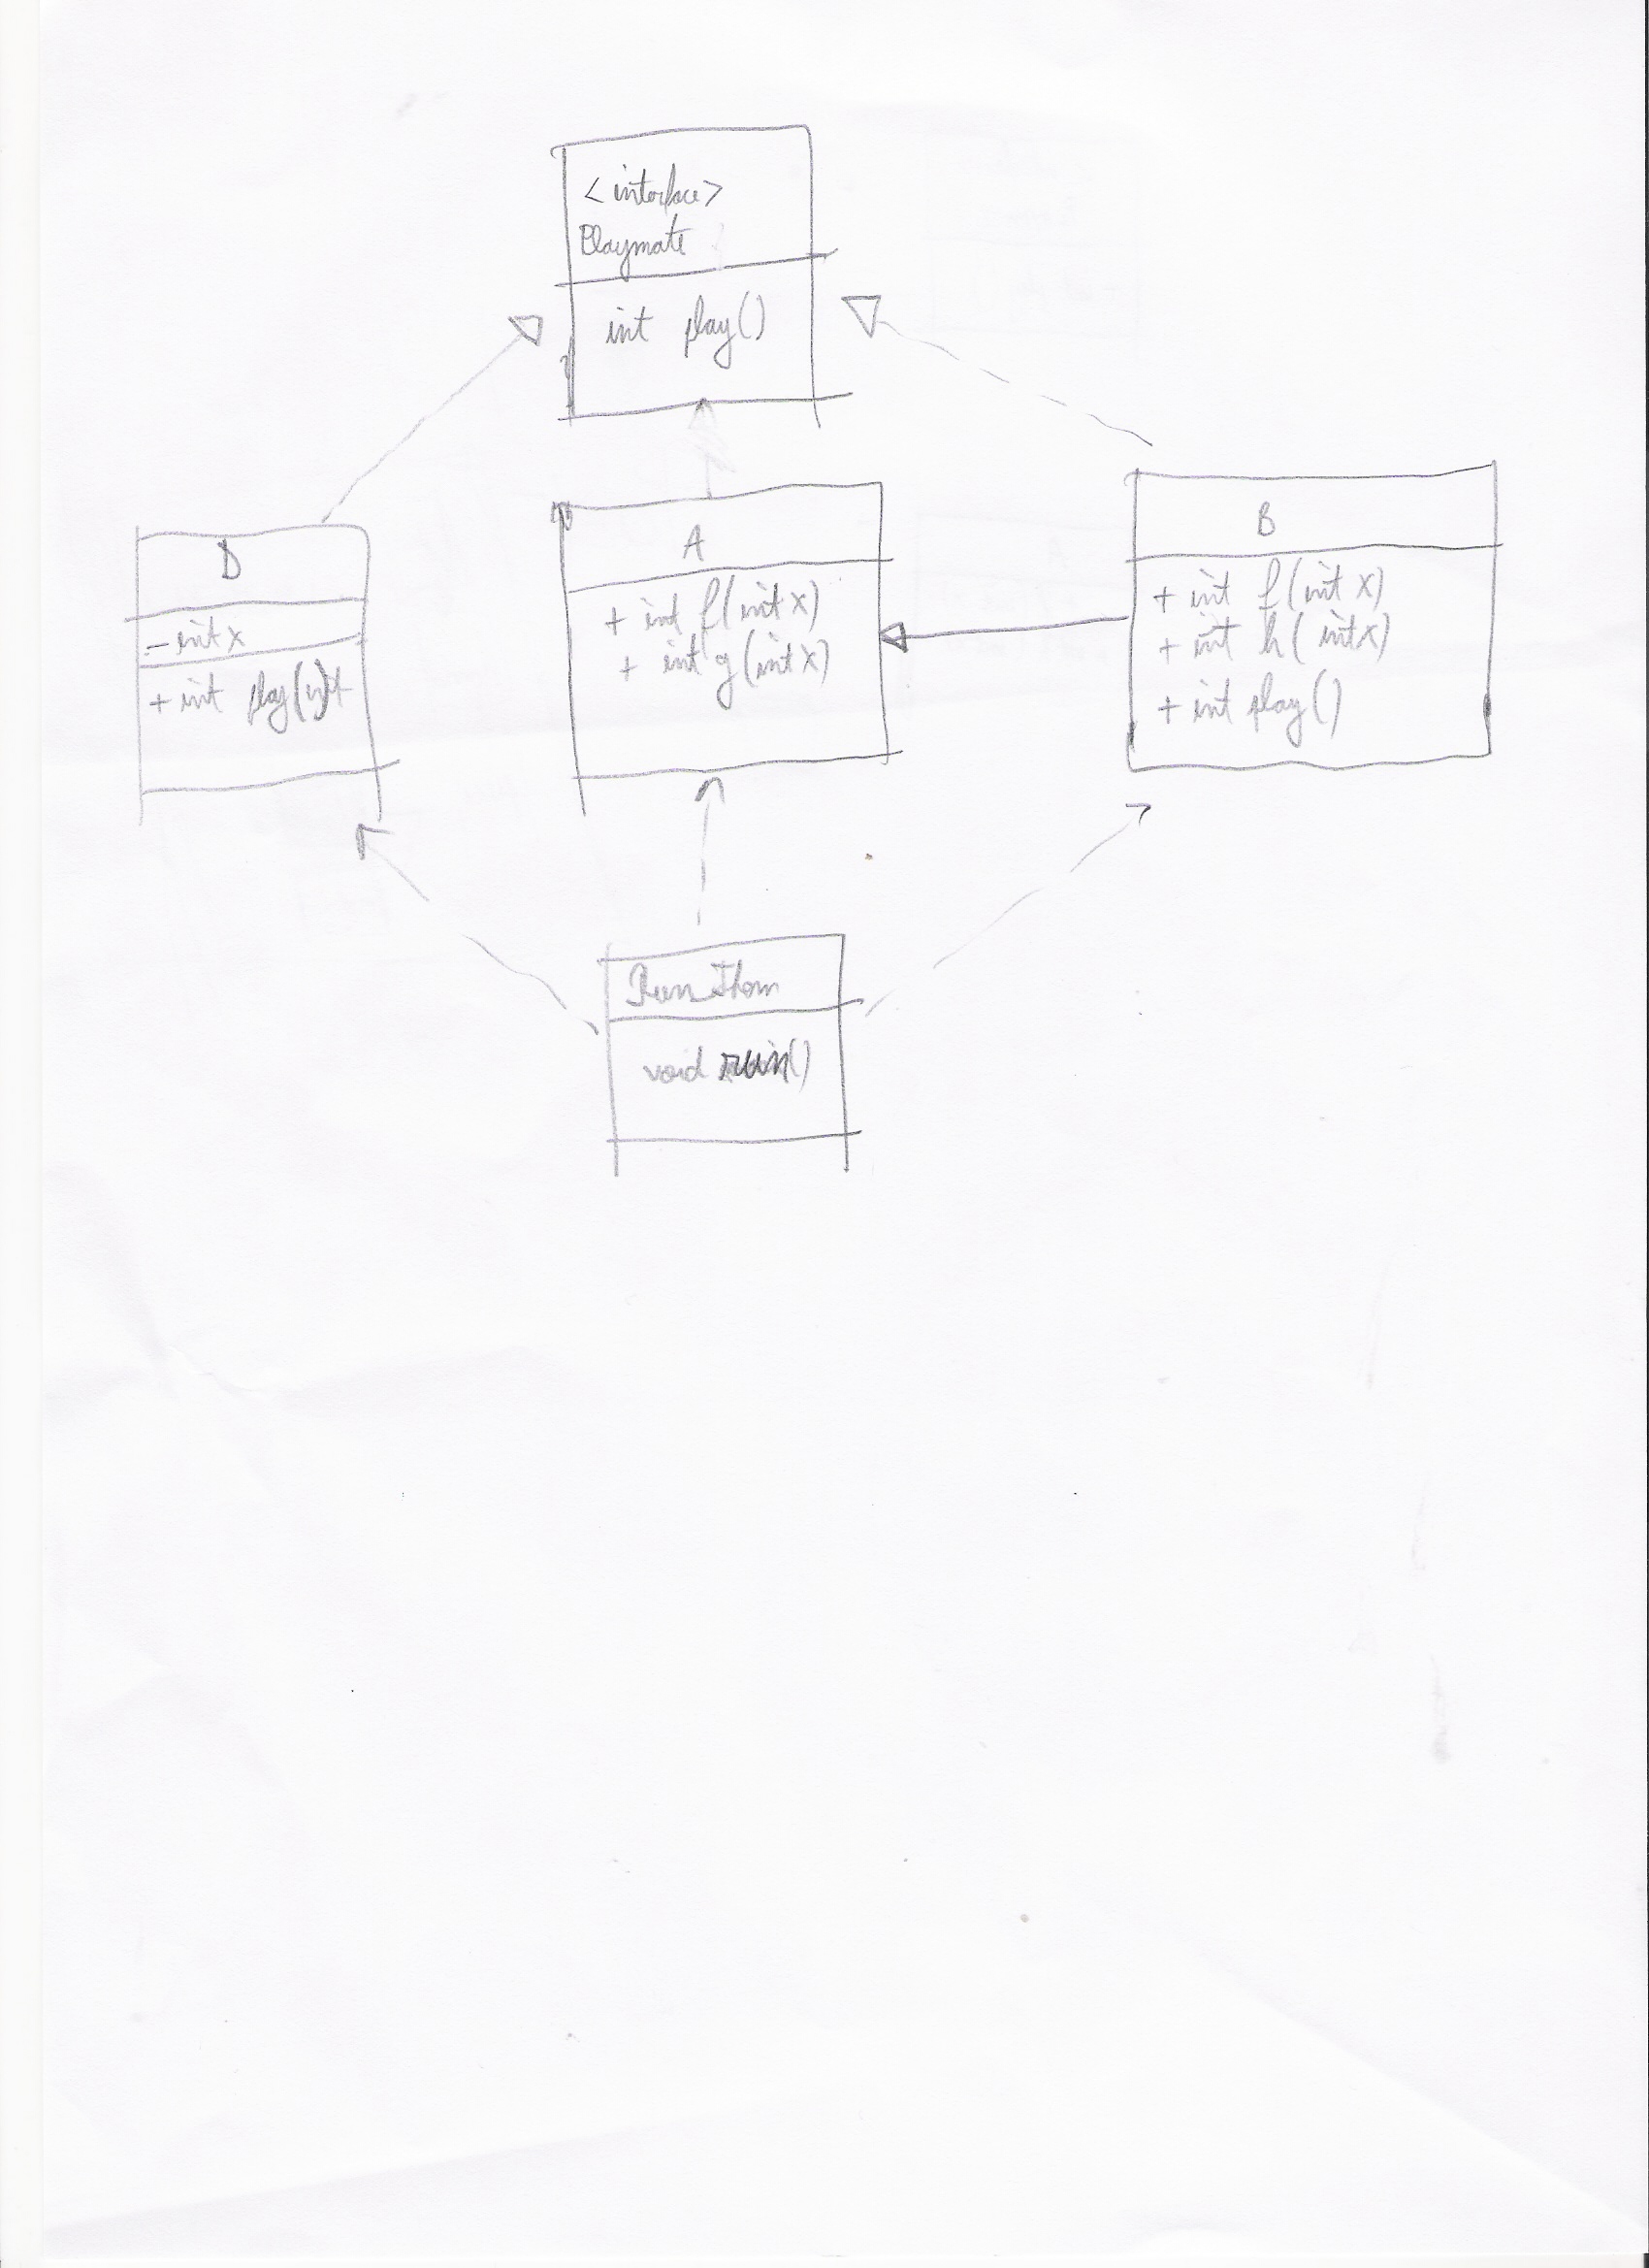 <interface>
Playmate
int play()
D
- int x
+ int play()
A
+ int f(int x)
+ int g(int x)
B
+ int f(int x)
+ int h(int x)
+ int play()
Run_Them
void run()